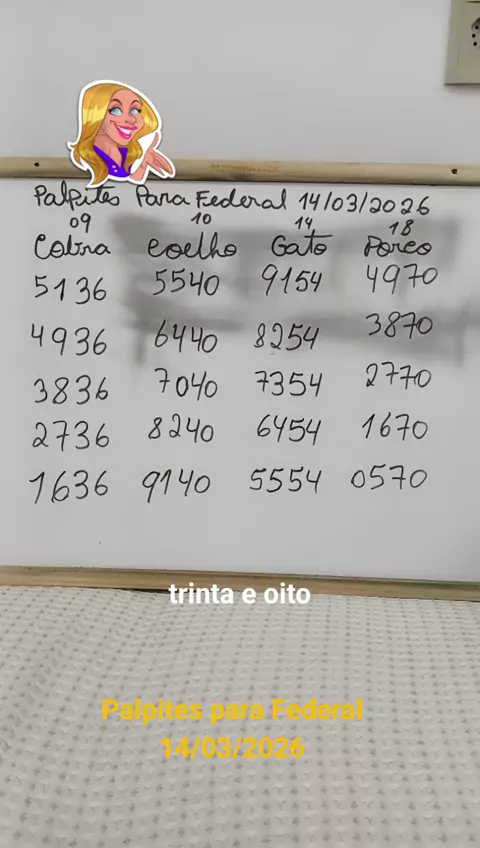 Palpites Para Federal 14/03/2026
09 10 14 18
Cobra Coelho Gato Porco
5136 5540 9154 4970
4936 6440 8254 3870
3836 7040 7354 2770
2736 8240 6454 1670
1636 9140 5554 0570
trinta e oito
Palpites para Federal
14/03/2026